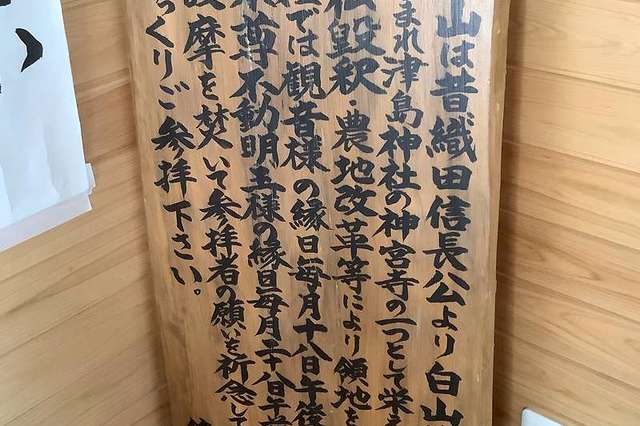 山は昔織田信長公より白山
まれ津島神社の神宮寺の一つとして栄え
仏毀釈・農地改革等により領地を
では観音様の縁日毎月十八日午後
尊不動明王様の縁日毎月二十八日午
摩を焚いて参拝者の願いを祈念して
っくりご参拝下さい。